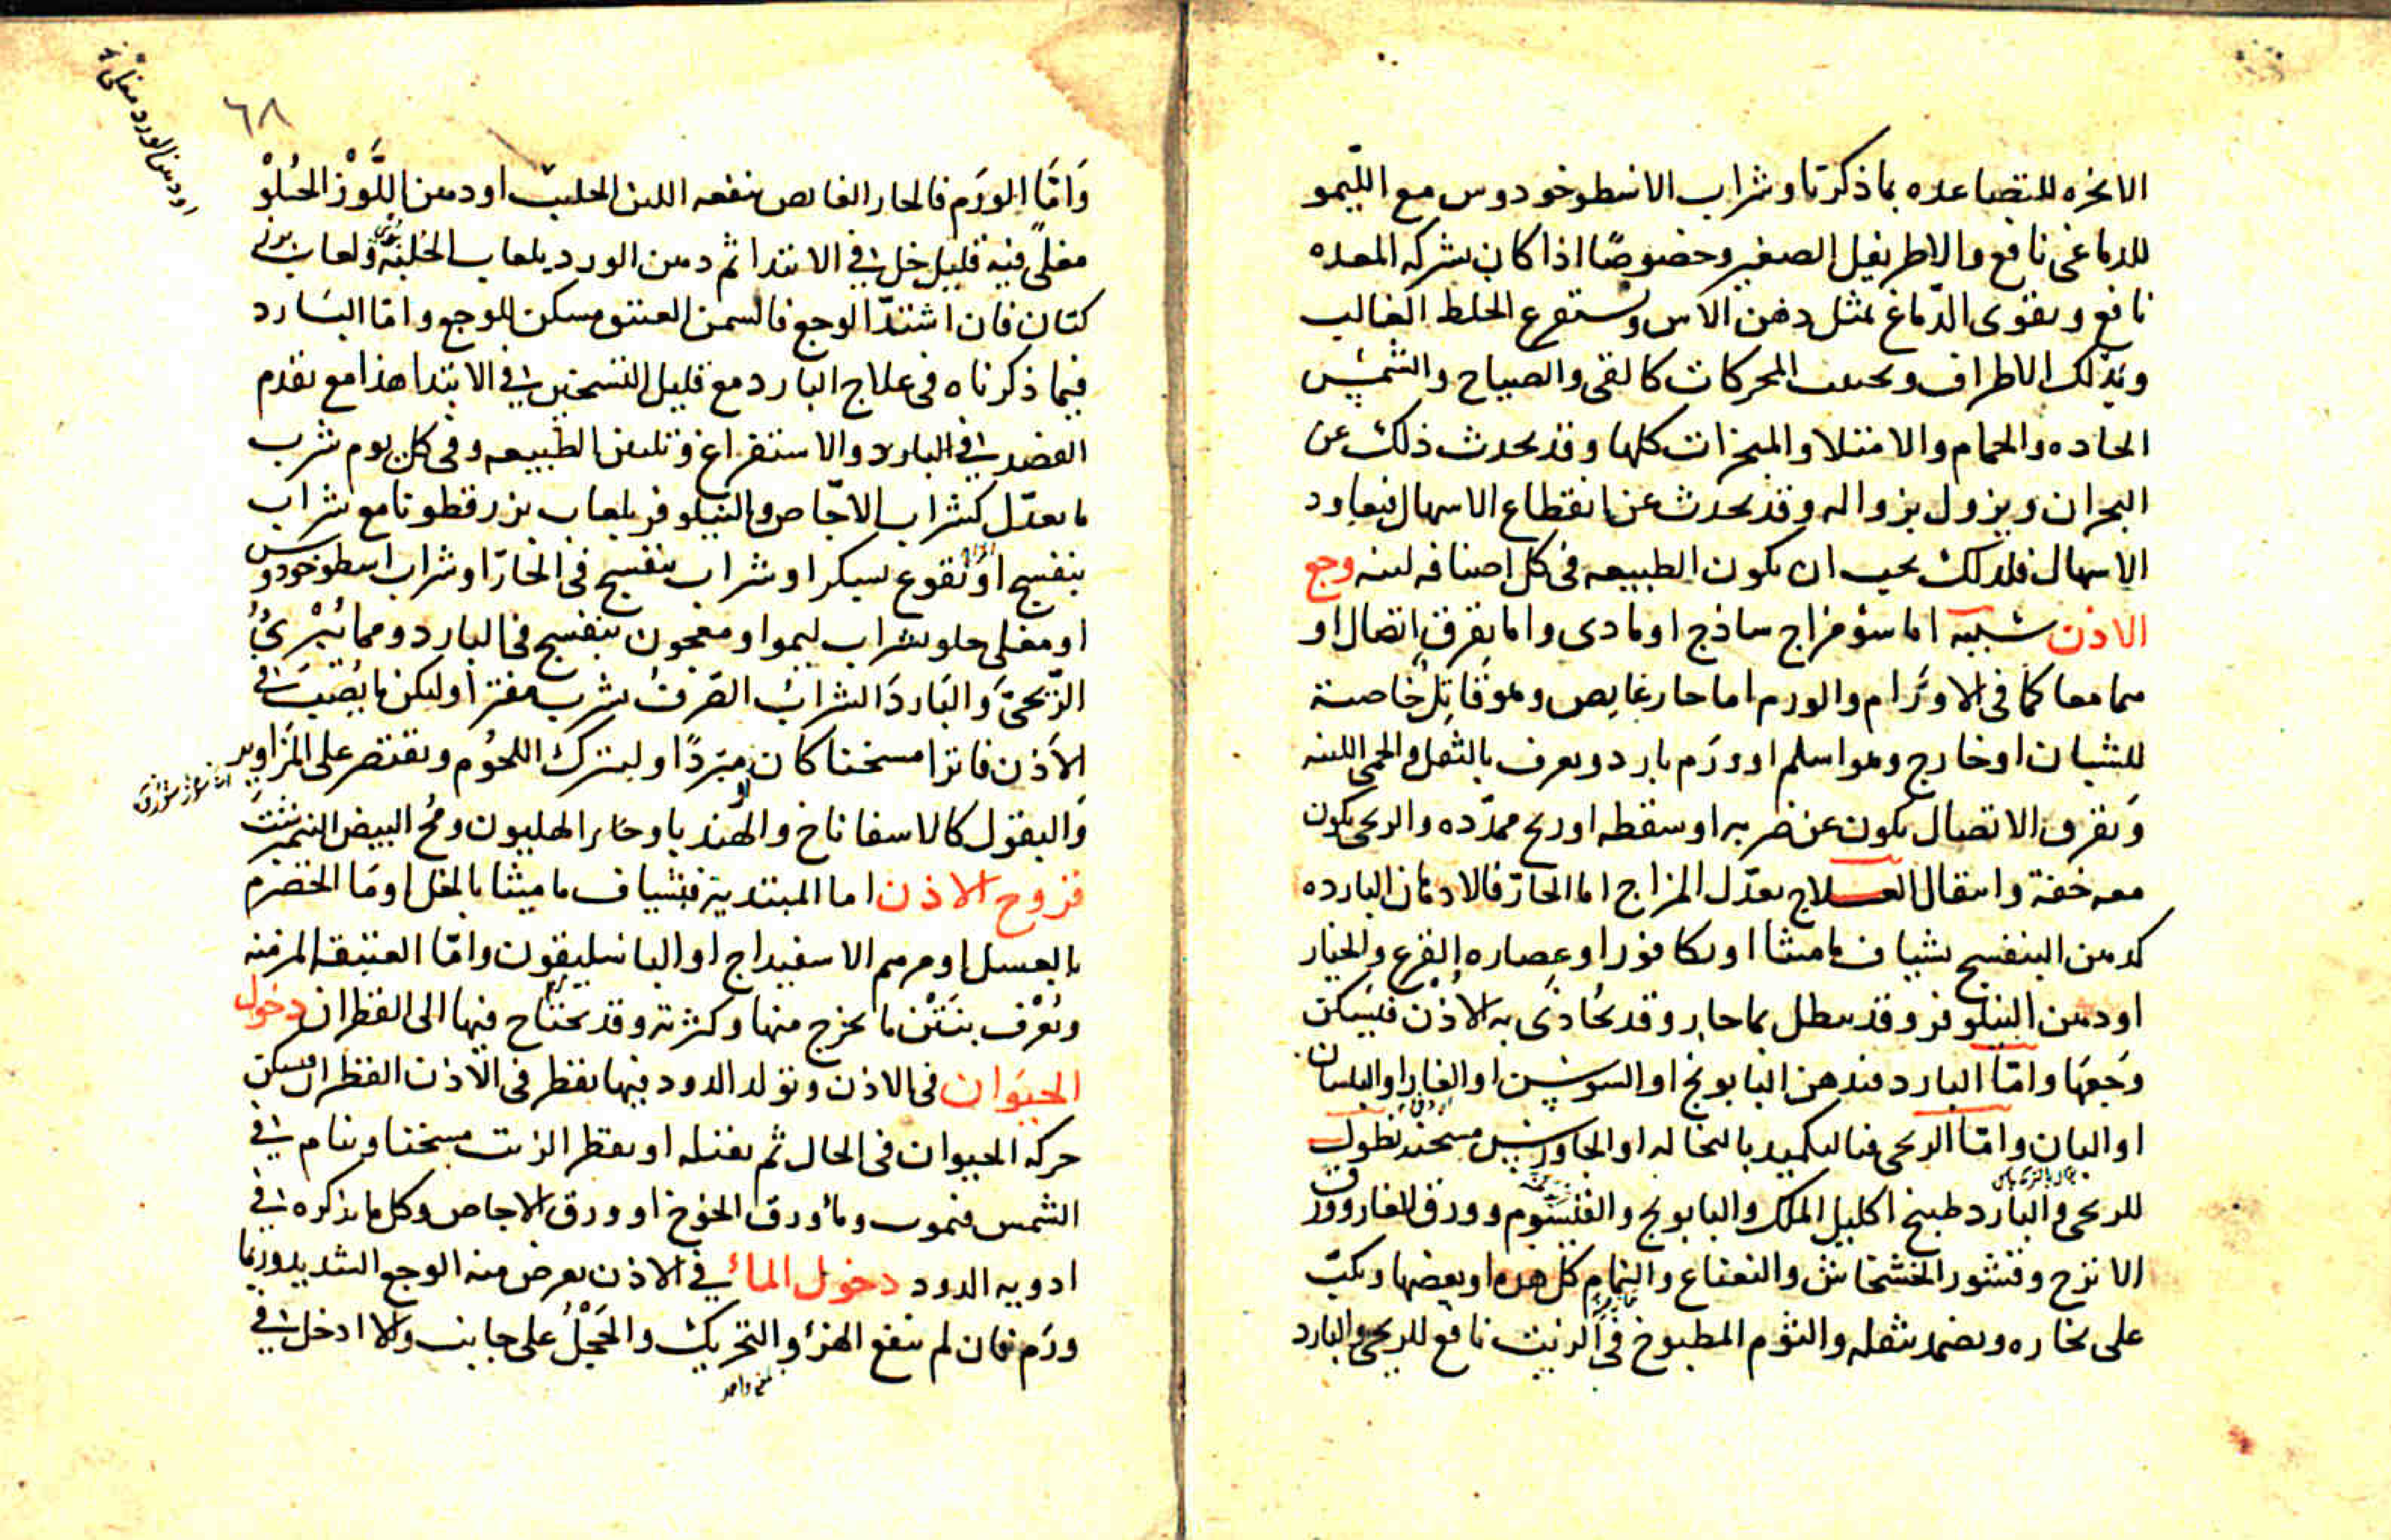 الابخره المتصاعده بما ذكرنا وشراب الاسطوخودوس مع الليمو
للدماغى نافع والاطريفيل الصغير وخصوصًا اذا كان بشركه المعده
نافع ويقوى الدّماغ بمثل دهن الآس ويستفرغ الخلط الغالب
وبذلك الاطراف ويجتنب المحركات كالقى والصياح والشمس
الحاده والحمام والامتلا والمبخرات كلها وقد يحدث ذلك عن
البحران ويزول بزواله وقد يحدث عن انقطاع الاسهال فيعاود
الاسهال فلذلك يجب ان يكون الطبيعه فى كل اصنافه لينه وجع
الاذن سببه اما سؤ مزاج ساذج او مادى واما تفرق اتصال او
هما معا كما فى الاوْرَام والورم اما حار غايص وهو قَاتِلٌ خاصة
للشبان او خارج وهو اسلم او ورَم بارد ويعرف بالثقل والحمى اللينه
وَتفرق الاتصال يكون عن ضربه او سقطه او ريح ممدّده والريحى يكون
معه خفة وانتقال العلاج يعدّل المزاج اما الحارّ فالادهان البارده
كدهن البنفسج بشياف ماميثا او بكافور او عصاره القرع والخيار
او دهن النيلوفر وقد ينطل بما حار وقد يُحَاذَى به الاُذْن فيسكن
وَجَعهَا وامّا البارد فدهن البابونج او السوسن او الغار او البلسان
او البان وامّا الريحى فبالتكميد بالنخاله او الجاورس مسخنه نطول
للريحى والبارد طبيخ اكليل الملك والبابونج والقيسوم وورق الغار وورق
الاترج وقشور الخشخاش والنعناع والنمام كل هذه او بعضها ويكبّ
على بخاره ويضمد بثفله والثوم المطبوخ فى الزيت نافع للريحى والبارد
٦٨
او دهن الورد مغلى
وَامَّا الورَم فالحار الغايص ينفعه اللبن الحليب او دهن اللَّوْز الحُلوْ
مغلىً فيه قليل خل فى الابتدا ثم دهن الورد بلعاب الحُلبَة ولعاب بزر
كتان فان اشتدّ الوجع فالسمن العتيق مسكن للوجع وامّا البَارد
فبما ذكرناه فى علاج البارد مع قليل التسخين فى الابتدا هذا مع تقدم
الفصد فى البارد والاستفراغ وتليين الطبيعه وفى كل يوم شرب
ما يعدّل كشراب الاجّاص والنيلوفر بلعاب بزر قطونا مع شراب
بنفسج او نقوع بسكر او شراب بنفسج فى الحارّ او شراب اسطوخودوس
او مغلى حلو بشراب ليمو او معجون بنفسج فى البارد ومما يُبْرئُ
الرّيحىّ وَالبَاردَ الشرابُ الصّرفُ يشرب مفترًا وليكن ما يُصَبّ فى
الاَذن فاترا مسخنا كان او مبرّدًا وليترك اللحُوم ويقتصر على المَزَاوير
وَالبقول كالاسفاناخ والهندبا وخاير الهليون ومُحّ البيض النيمبرشت
قروح الاذن اما المبتديه فبشياف ماميثا بالخل او مَا الحصرم
بالعسل او مرهم الاسفيداج او الباسليقون وامّا العتيقه المزمنه
وتعْرَف بنَتْن ما يخرج منها وكثرته وقد يحتاج فيها الى القطران دخول
الحيوان فى الاذن وتولد الدود فيها يقطر فى الاذن القطران فيسكن
حركه الحيوان فى الحال ثم يقتله او يقطر الزيت مسخنا وينام فى
الشمس فيموت ومأ ورق الخوخ او ورق الاجاص وكل ما يذكره فى
ادويه الدود دخول المأ فى الاذن يعرض منه الوجع الشديد وربما
ورَم فان لم ينفع الهزّ والتحريك والحَجْلُ على جانب والا ادخل فى